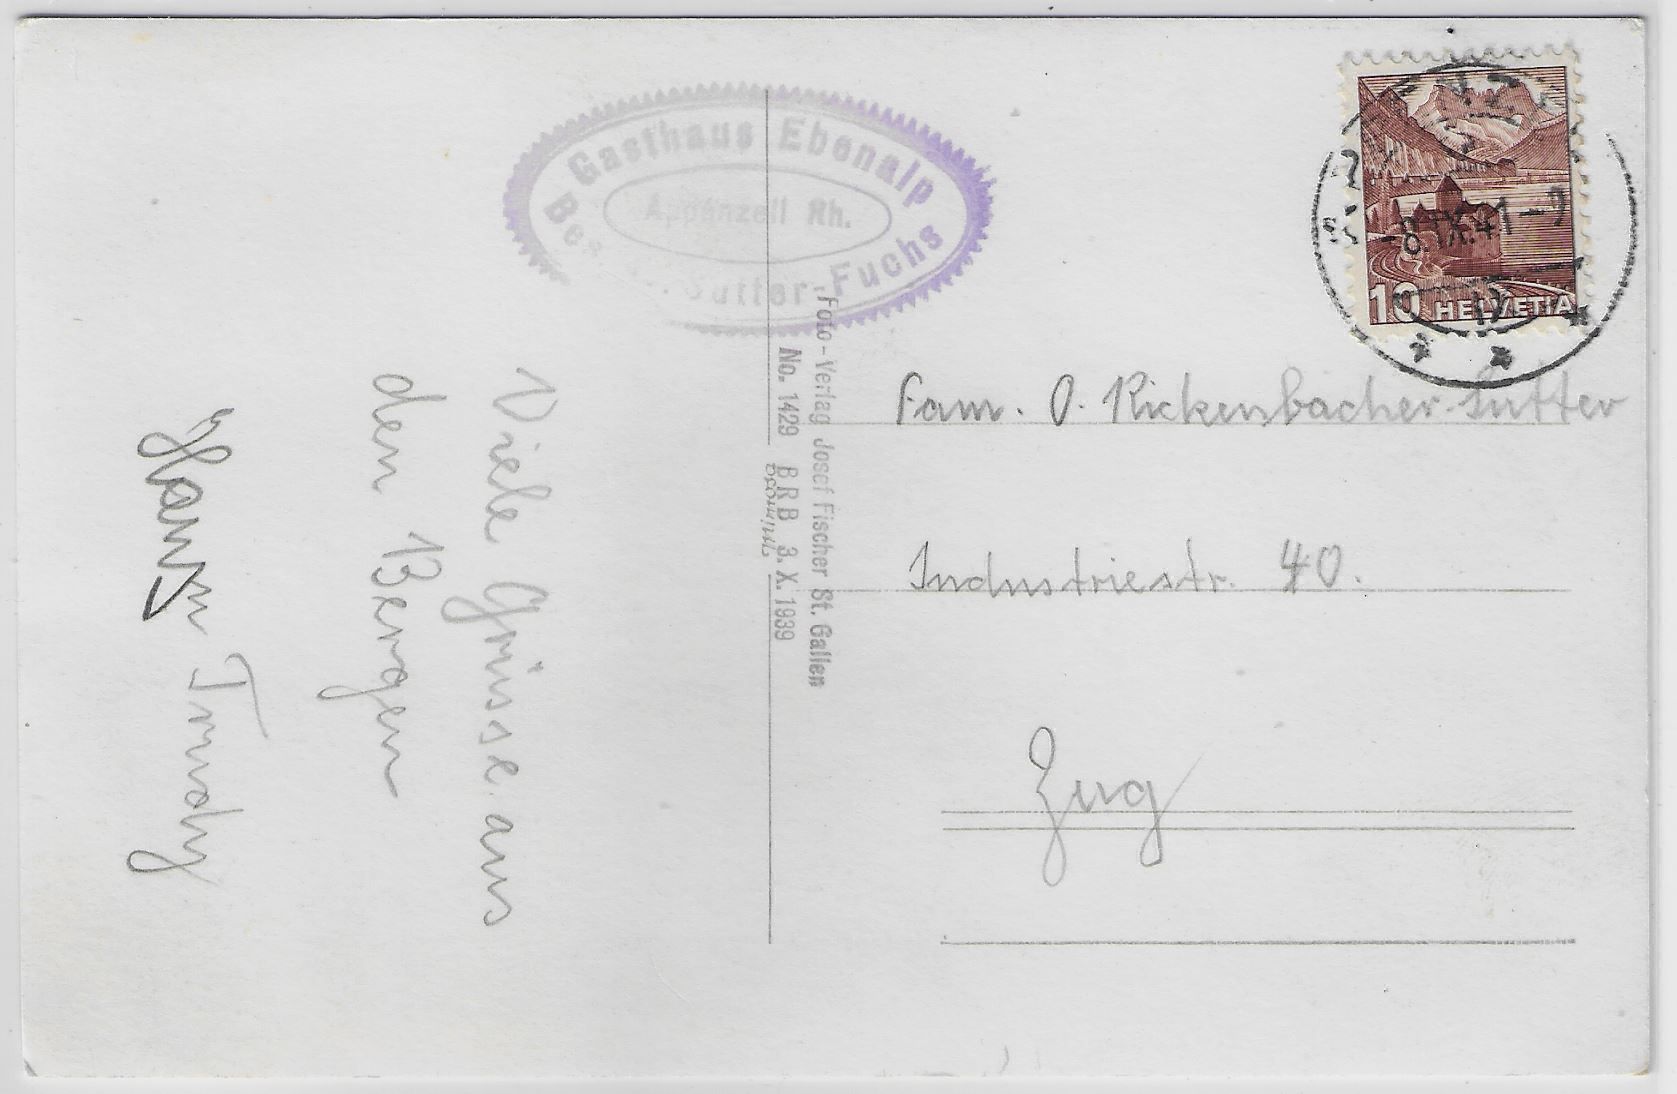 Gasthaus Ebenalp
Appenzell Rh.
Bes. Sutter-Fuchs
-8.IX.41-9
10 HELVETIA
Foto-Verlag Josef Fischer St. Gallen
No. 1429 BRB 3.X.1939
Viele Grüsse aus
den Bergen
Hans
Trudy
Fam. O. Rickenbacher-Sutter
Industriestr. 40.
Zug